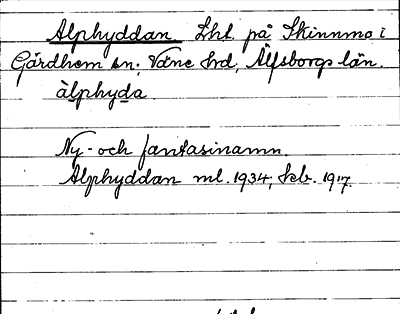 Alphyddan. Lht. på Skinnmo i
Gärdhem sn; Väne hrd, Älfsborgs län.
àlphyda
Ny- och fantasinamn.
Alphyddan ml. 1934; skb. 1917.